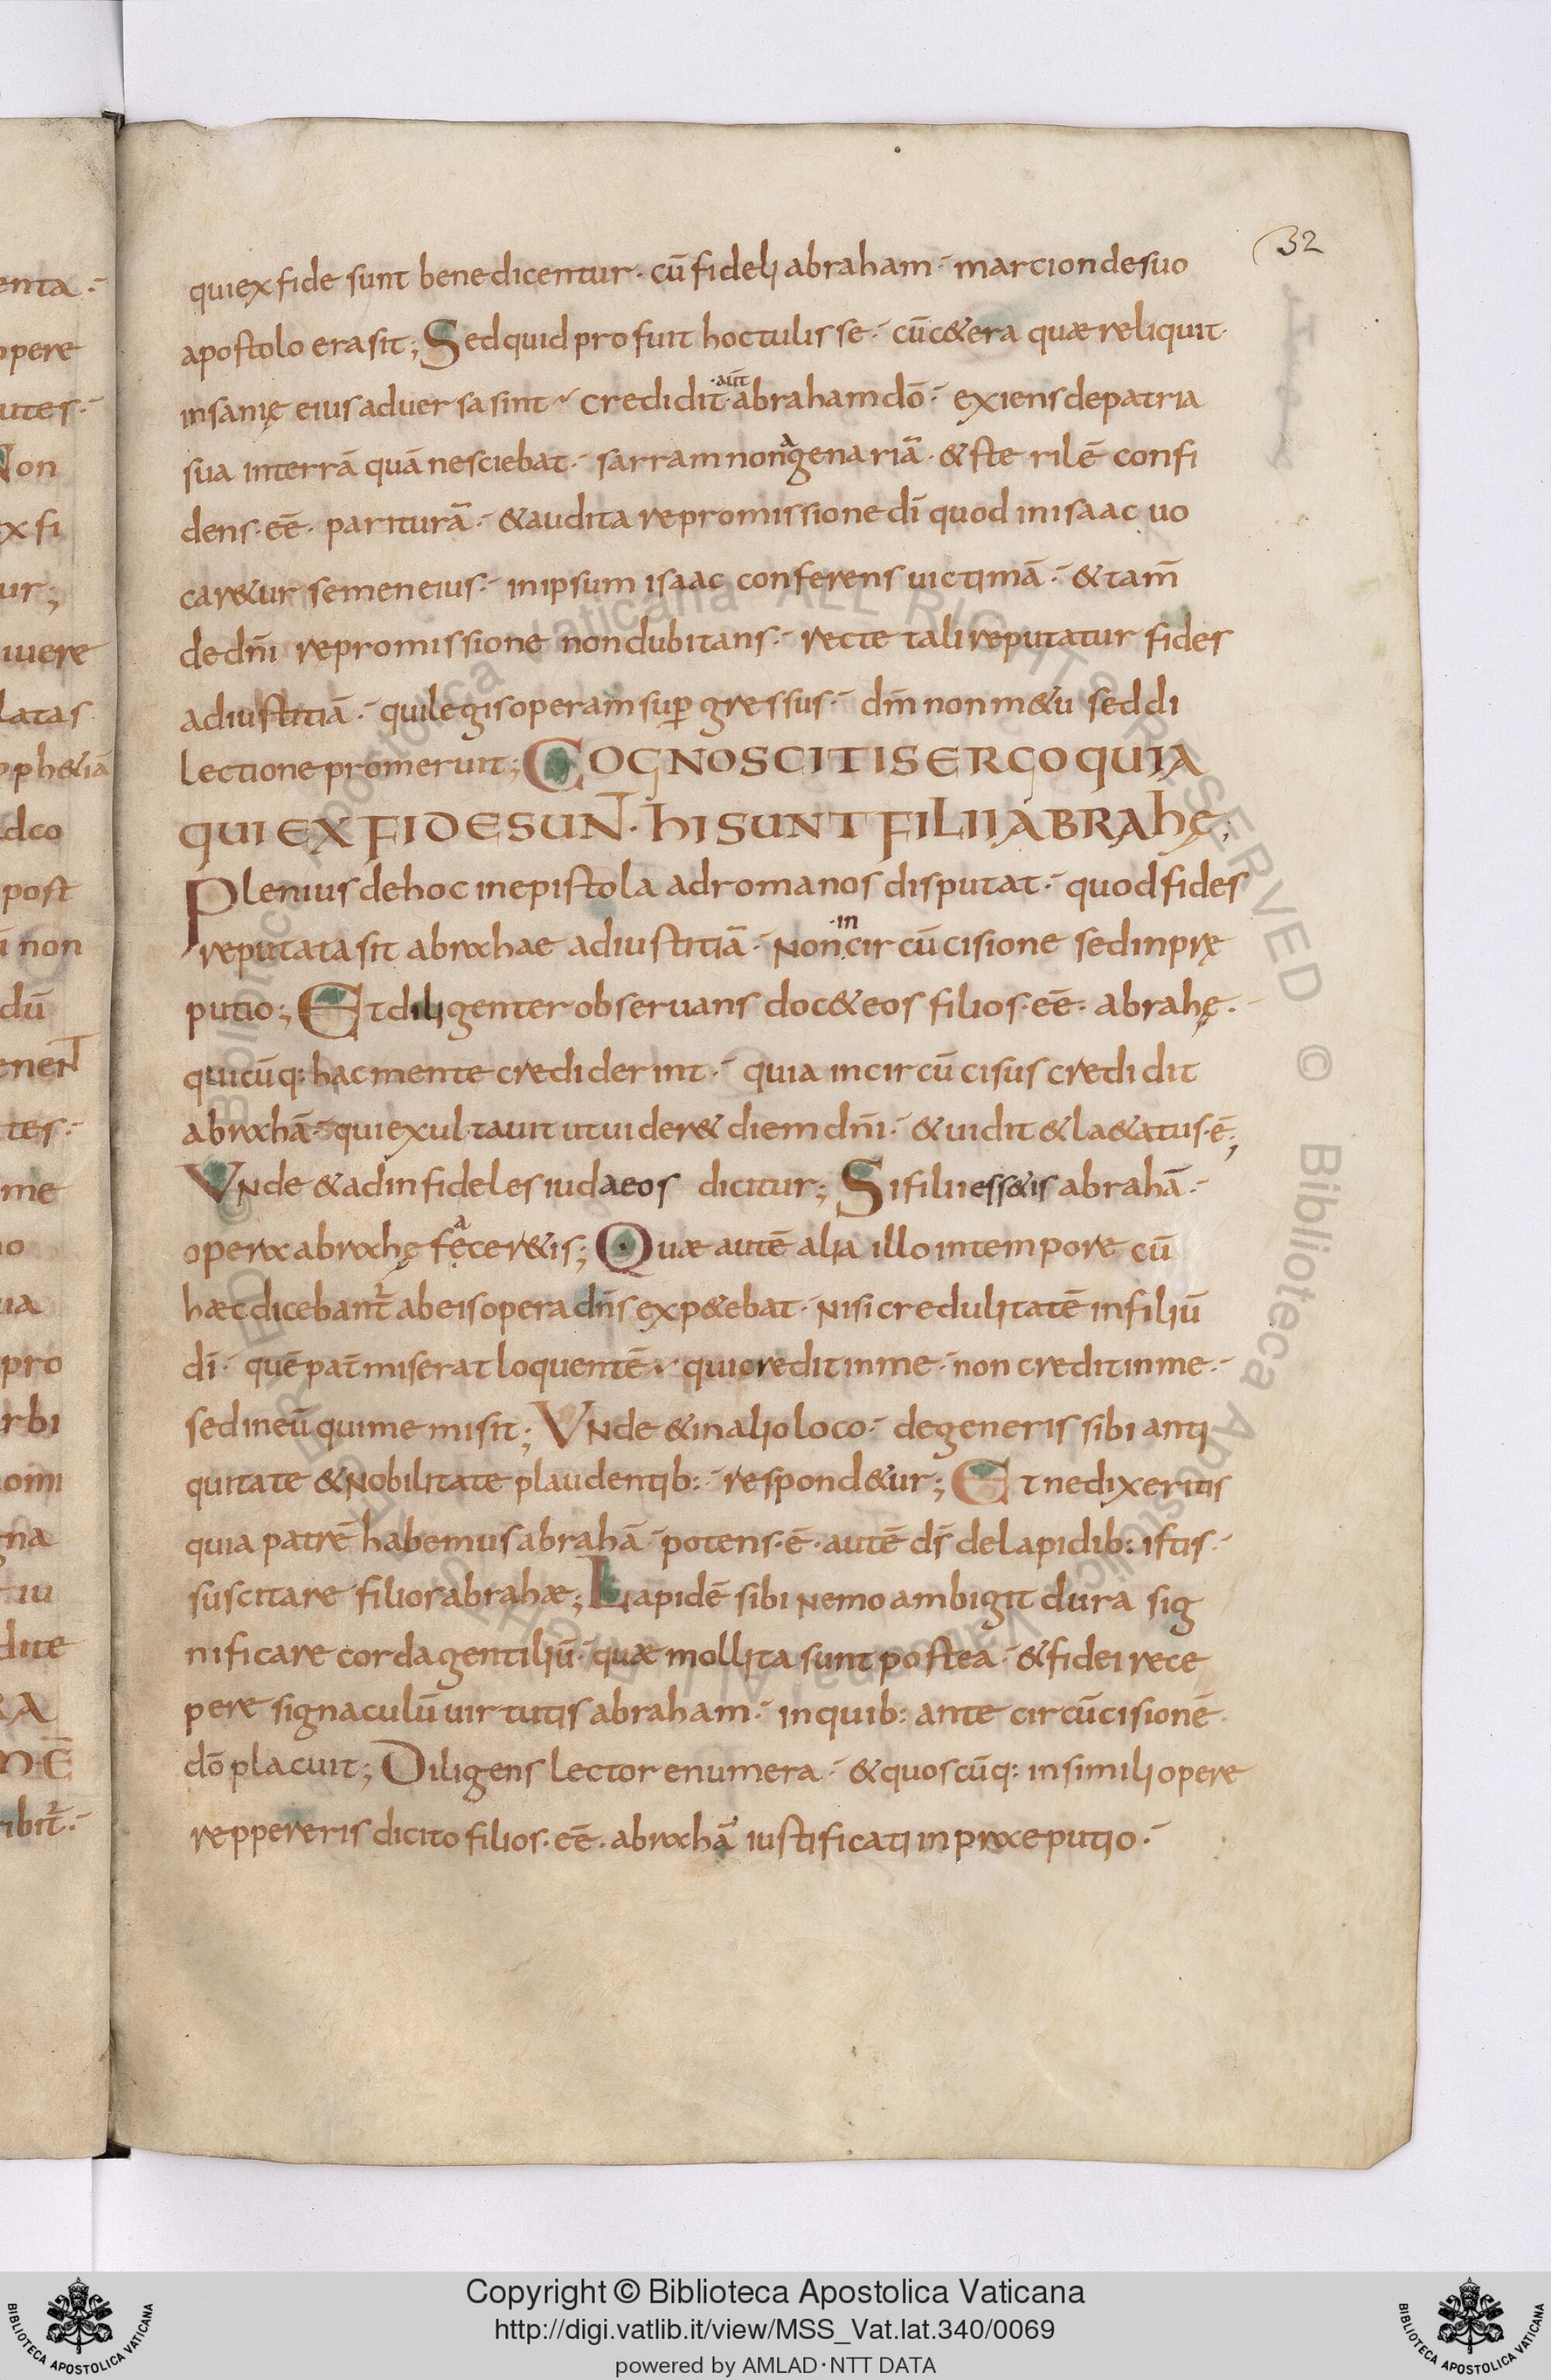 32
qui ex fide sunt benedicentur· cū fideli abraham· marcion de suo
apostolo erasit; Sed quid profuit hoc tulisse· cū c&era quæ reliquit·
insanię eius aduersa sint· credidit ·aūt· abraham dō· exiens de patria
sua in terrā quā nesciebat· sarram nonagenariā· & sterilē confi
dens· eē· pariturā· & audita repromissione dī quod in isaac uo
car&ur semen eius· in ipsum isaac conferens uictimā· & tam̄
de dn̄i repromissione non dubitans· recte tali reputatur fides
ad iustitiā· qui legis operam suꝑgressus· dm̄ non m&u sed di
lectione promeruit; COGNOSCITIS ERGO QUIA
QUI EX FIDE SUNT· HI SUNT FILII ABRAHĘ;
Plenius de hoc in epistola ad romanos disputat· quod fides
reputata sit abrahae ad iustitiā· non ·in circūcisione sed in prę
putio; Et diligenter obseruans doc& eos filios· eē· abrahę·
quicūq: hac mente crediderint· quia incircūcisus credidit
abrahā· qui exultauit ut uider& diem dn̄i· & uidit & la&atus· ē·;
Vnde & ad infideles iudaeos dicitur; Si filii ess&is abrahā·
opera abrahę fęacer&is; Quæ autē alia illo in tempore cū
hæc dicebant̄ ab eis opera dn̄s exp&ebat· nisi credulitatē in filiū
dī· quē pat̄ miserat loquentē· qui credit in me· non credit in me·
sed in eū qui me misit; Vnde & in alio loco· de generis sibi anti
quitate & nobilitate plaudentib:· respond&ur; Et ne dixeritis
quia patrē habemus abrahā· potens· ē· autē ds̄ de lapidib: istis·
suscitare filior abrahæ; Lapidē sibi nemo ambigit dura sig
nificare corda gentiliū· quæ mollita sunt postea· & fidei rece
pere signaculū uirtutis abraham· in quib: ante circūcisionē·
dō placuit; Diligens lector enumera· & quoscūq: in simili opere
reppereris dicito filios· eē· abrahā iustificati in praeputio·
enta·
opere
utes·
Non
ex fi
ur;
iuere
latas
oph&iā
dco
post
i non
dū
enent
tes·
me
no
ua
pro
rbi
omi
gna
iu
dite
RA
M·Ē
ribit̄·
© Biblioteca Apostolica Vaticana ALL RIGHTS RESERVED
Copyright © Biblioteca Apostolica Vaticana
http://digi.vatlib.it/view/MSS_Vat.lat.340/0069
powered by AMLAD·NTT DATA
BIBLIOTECA APOSTOLICA VATICANA
BIBLIOTECA APOSTOLICA VATICANA